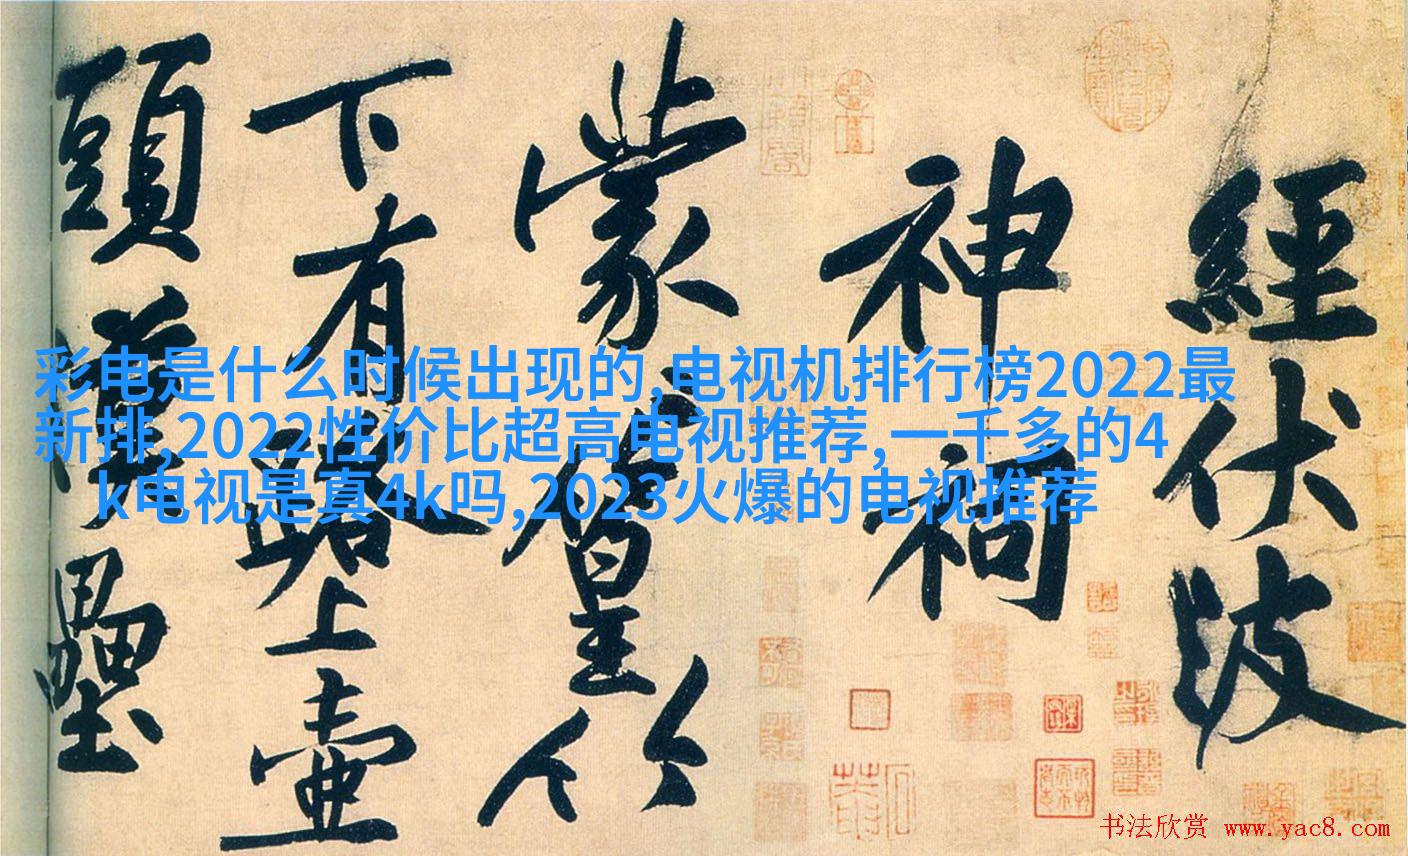 彩电是什么时候出现的,电视机排行榜2022最
新排,2022性价比超高电视推荐,一千多的4
k电视是真4k吗,2023火爆的电视推荐
經伏波
神祠
蒙〻篁竹
下有路上壺
頭漢壘
书法欣赏 www.yac8.com